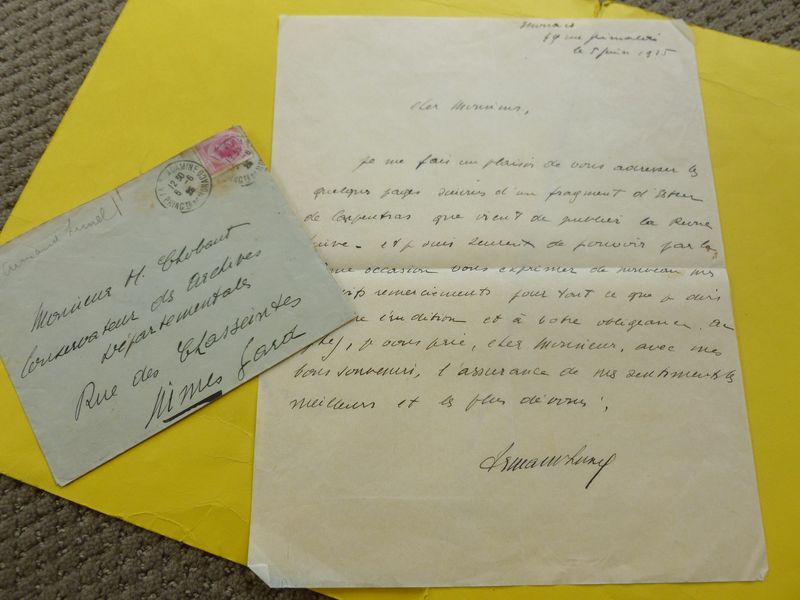 Monaco
le 5 juin 1925
Cher Monsieur,
Je me fais un plaisir de vous adresser les
quelques pages suivies d'un fragment d'Esther
de Carpentras que vient de publier la Revue
Juive - et je suis heureux de pouvoir par la
occasion vous exprimer de nouveau mes
remerciements pour tout ce que je dois
érudition et à votre obligeance.
je vous prie, cher Monsieur, avec mes
bons souvenirs, l'assurance de mes sentiments les
meilleurs et les plus dévoués.
Armand Lunel
Armand Lunel
Monsieur H. Chobaut
Conservateur des Archives
Départementales
Rue des Chassaintes
Nîmes Gard